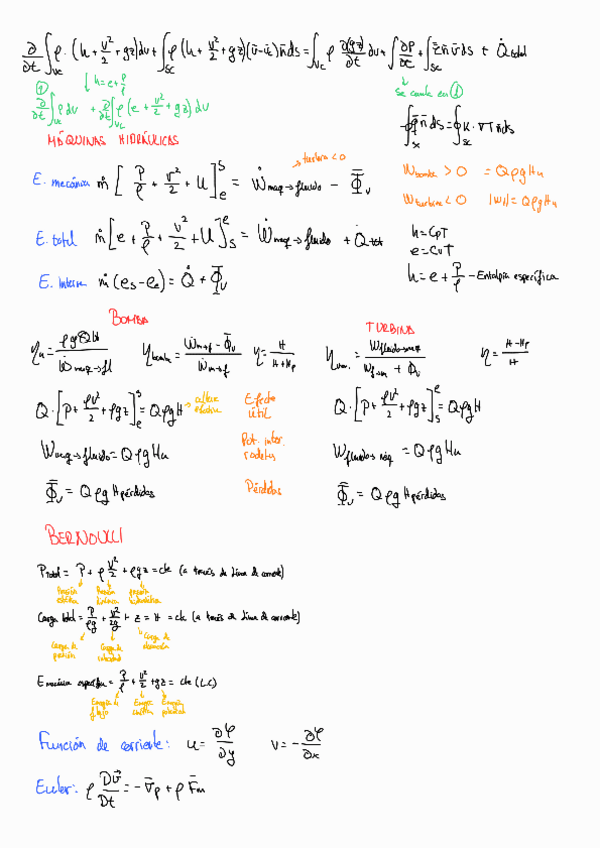 ∂/∂t ∫_VC ρ·(h + v²/2 + gz)dv + ∫_SC ρ(h + v²/2 + gz)(v̄-ūc)n̄ds = ∫_VC ρ ∂(gz)/∂t dv + ∫ ∂P/∂t + ∫_SC z̄n̄v̄ds + Q̇total
① ↓ h=e+P/ρ
∂/∂t ∫_VC Pdv + ∂/∂t ∫_VC ρ(e + v²/2 + gz)dv
se cambia en ①
MÁQUINAS HIDRÁULICAS
= ∮_SC K·∇T n̄ds
→ turbina <0
E. mecánica ṁ[P/ρ + v²/2 + U]ₑˢ = Ẇmaq→fluido - Φ̄v
Wbomba > 0 = QρgHu
Wturbina < 0 |W| = QρgHu
E. total ṁ[e + P/ρ + v²/2 + U]ₛᵉ = Ẇmaq→fluido + Q̇tot
h=CpT
e=CvT
h=e+P/ρ - Entalpía específica
E. Interna ṁ(es-ee) = Q̇ + Φ̄v
BOMBA
TURBINA
ηbomba = (Ẇm→f - Φ̄v)/Ẇm→f η = H/(H+Hp)
η = (H-Hp)/H
Q·[P + ρv²/2 + ρgz]ₑˢ = QρgH → altura efectiva
Efecto útil
Q·[P + ρv²/2 + ρgz]ₛᵉ = QρgH
Wmaq→fluido = QρgHu
Pot. inter. rodetes
Wfluido→máq = QρgHu
Φ̄v = QρgHpérdidas
Pérdidas
Φ̄v = QρgHpérdidas
BERNOULLI
PTotal = P + ρv²/2 + ρgz = cte (a través de línea de corriente)
Presión estática Presión dinámica presión hidrostática
Carga total = P/ρg + v²/2g + z = H = cte (a través de línea de corriente)
Carga de presión Carga de velocidad Carga de elevación
E mecánica específica = P/ρ + v²/2 + gz = cte (L.C)
Energía de flujo Energía cinética Energía potencial
Función de corriente: u = ∂φ/∂y v = -∂φ/∂x
Euler: ρ Dv̄/Dt = -∇̄p + ρF̄m